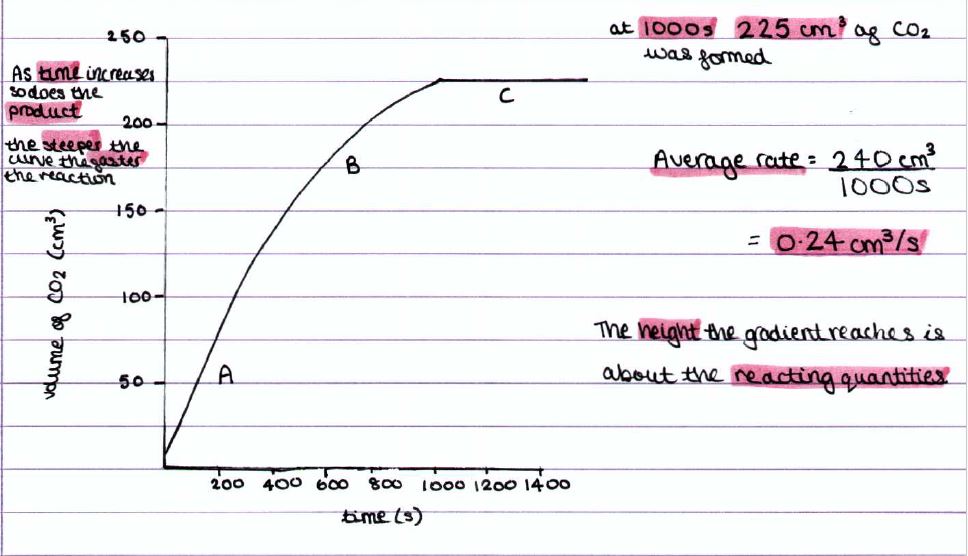 at 1000s 225 cm³ of CO₂
was formed
250
As time increases
so does the
product
200
the steeper the
curve the faster
the reaction
B
C
Average rate = 240 cm³
1000s
= 0.24 cm³/s
150
volume of CO₂ (cm³)
100
The height the gradient reaches is
about the reacting quantities
50
A
200 400 600 800 1000 1200 1400
time (s)